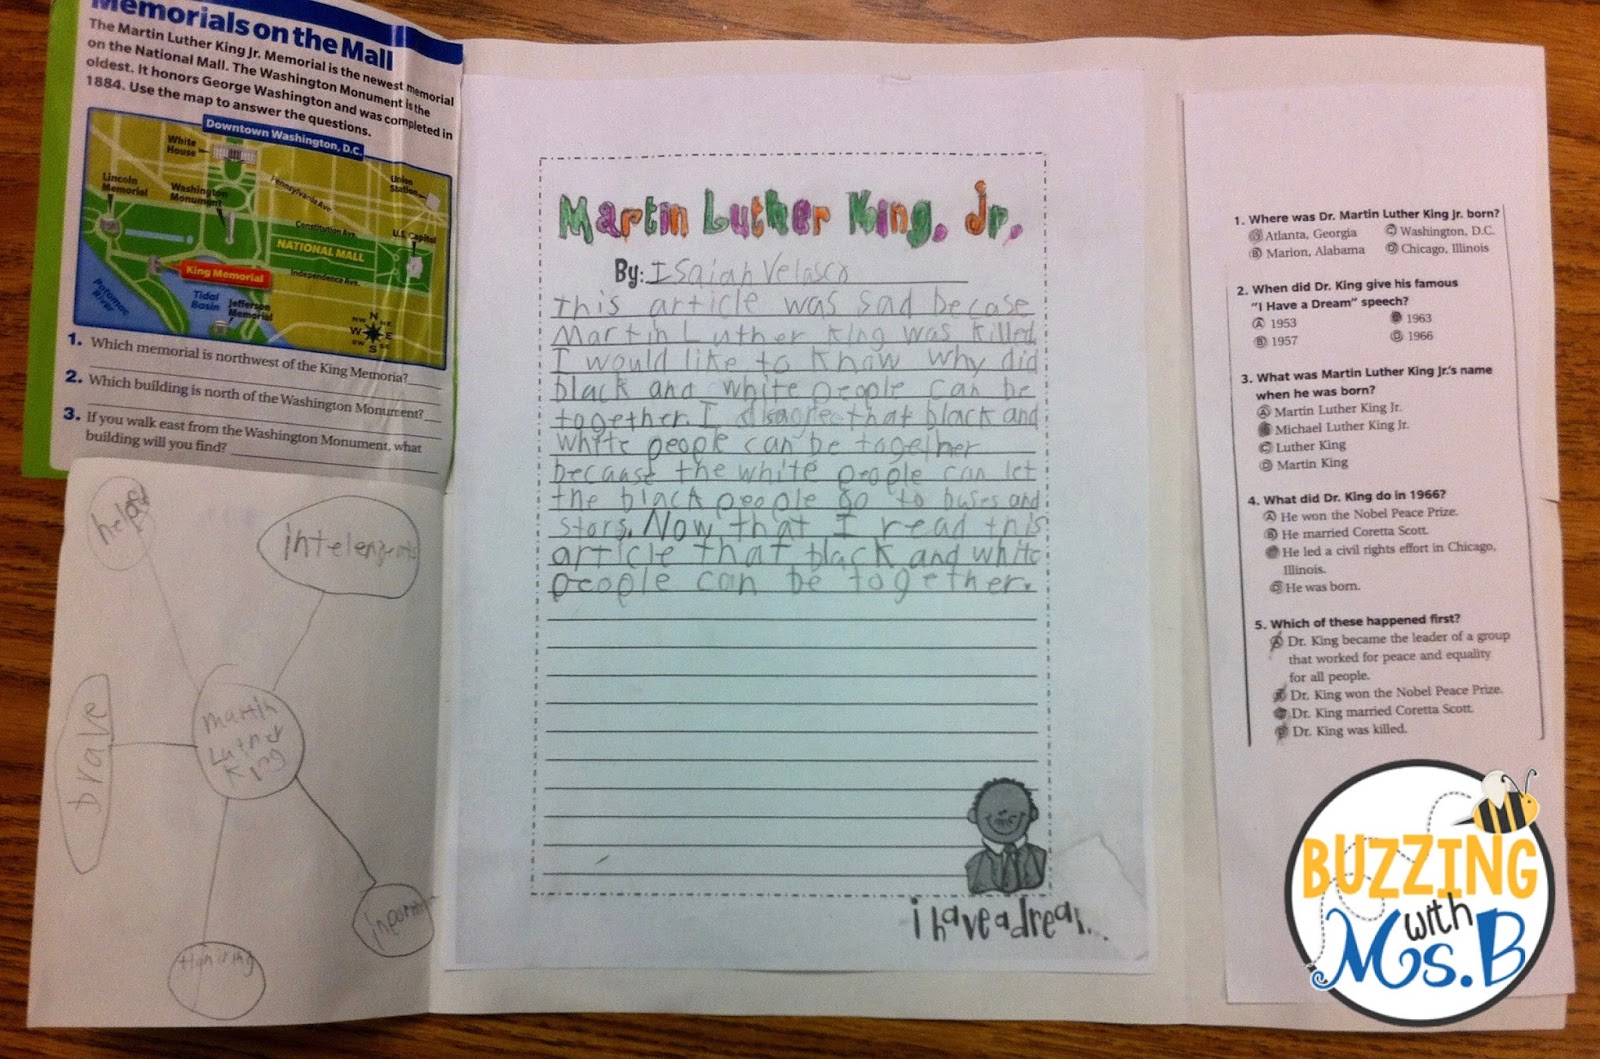 Memorials on the Mall
The Martin Luther King Jr. Memorial is the newest memorial
on the National Mall. The Washington Monument is the
oldest. It honors George Washington and was completed in
1884. Use the map to answer the questions.
Downtown Washington, D.C.
White
House
Union
Station
Lincoln
Memorial
Washington
Monument
Pennsylvania Ave.
Constitution Ave.
U.S. Capitol
NATIONAL MALL
King Memorial
Independence Ave.
Potomac
River
Tidal
Basin
Jefferson
Memorial
N
NW NE
W E
SW SE
S
1. Which memorial is northwest of the King Memorial?
2. Which building is north of the Washington Monument?
3. If you walk east from the Washington Monument, what
building will you find?
intelengent
brave
martin
Luther
King
Martin Luther King, Jr.
By: Isaiah Velasco
This article was sad becase
Martin Luther King was killed.
I would like to know why did
black and white people can be
together. I disagree that black and
white people can be together
because the white people can let
the black people go to buses and
stors. Now that I read this
article that black and white
people can be together.
i have a drea...
1. Where was Dr. Martin Luther King Jr. born?
Atlanta, Georgia C Washington, D.C.
B Marion, Alabama D Chicago, Illinois
2. When did Dr. King give his famous
"I Have a Dream" speech?
A 1953 1963
B 1957 D 1966
3. What was Martin Luther King Jr.'s name
when he was born?
A Martin Luther King Jr.
Michael Luther King Jr.
C Luther King
D Martin King
4. What did Dr. King do in 1966?
A He won the Nobel Peace Prize.
B He married Coretta Scott.
He led a civil rights effort in Chicago,
Illinois.
D He was born.
5. Which of these happened first?
A Dr. King became the leader of a group
that worked for peace and equality
for all people.
Dr. King won the Nobel Peace Prize.
Dr. King married Coretta Scott.
Dr. King was killed.
BUZZING
with
Ms. B